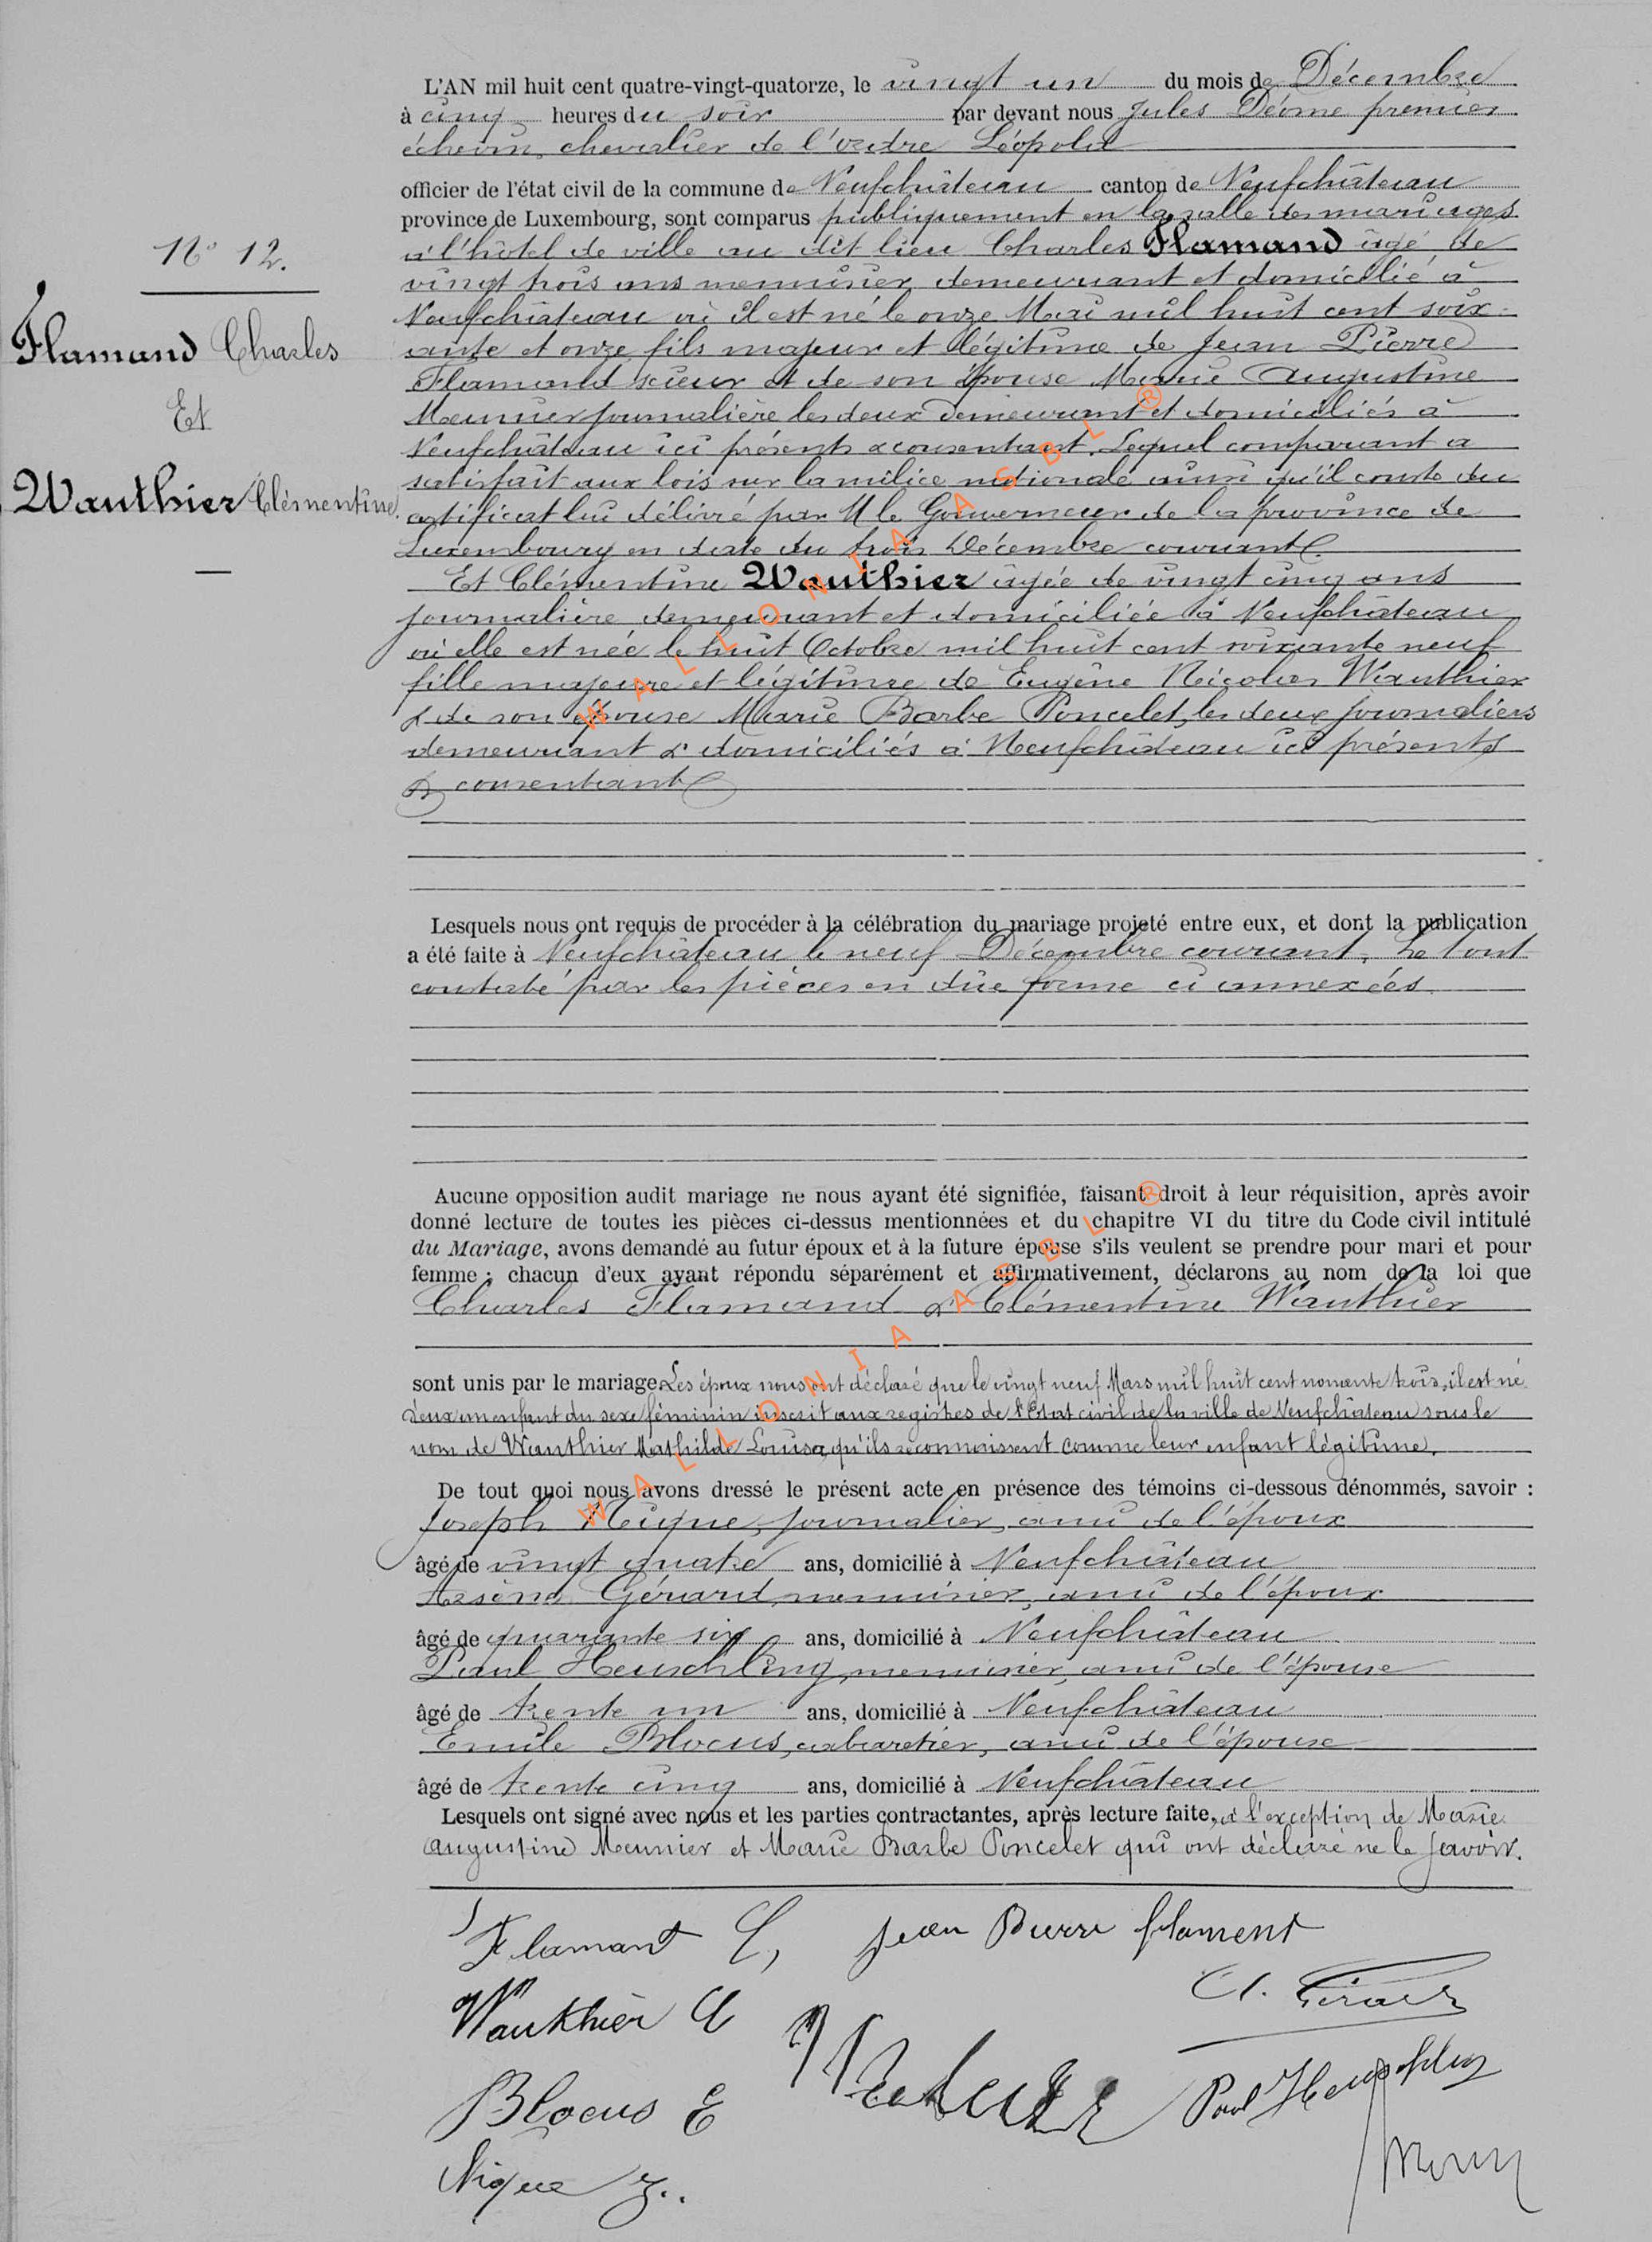 L'AN mil huit cent quatre-vingt-quatorze, le vingt un du mois de Décembre
à cinq heures du soir par devant nous Jules Déome premier
échevin, chevalier de l'ordre Léopold
officier de l'état civil de la commune de Neufchâteau canton de Neufchâteau
province de Luxembourg, sont comparus publiquement en la salle des mariages
N° 12.
à l'hôtel de ville au dit lieu Charles Flamand âgé de
vingt trois ans menuisier demeurant et domicilié à
Neufchâteau où il est né le onze Mai mil huit cent soix-
Flamand Charles
ante et onze fils majeur et légitime de Jean Pierre
Flamand scieur et de son épouse Marie Augustine
Et
Meunier journalière les deux demeurant et domiciliés à
Neufchâteau ici présents & consentant. Lequel comparant a
satisfait aux lois sur la milice nationale ainsi qu'il conste du
Wauthier Clémentine.
certificat lui délivré par M le Gouverneur de la province de
Luxembourg en date du trois Décembre courant
Et Clémentine Wauthier âgée de vingt cinq ans
journalière demeurant et domiciliée à Neufchâteau
où elle est née le huit Octobre mil huit cent soixante neuf
fille majeure et légitime de Eugène Nicolas Wauthier
& de son épouse Marie Barbe Poncelet, les deux journaliers
demeurant & domiciliés à Neufchâteau ici présents
& consentant
Lesquels nous ont requis de procéder à la célébration du mariage projeté entre eux, et dont la publication
a été faite à Neufchâteau le neuf Décembre courant, Le tout
constaté par les pièces en dûe forme ci annexées.
Aucune opposition audit mariage ne nous ayant été signifiée, faisant droit à leur réquisition, après avoir
donné lecture de toutes les pièces ci-dessus mentionnées et du chapitre VI du titre du Code civil intitulé
du Mariage, avons demandé au futur époux et à la future épouse s'ils veulent se prendre pour mari et pour
femme ; chacun d'eux ayant répondu séparément et affirmativement, déclarons au nom de la loi que
Charles Flamand & Clémentine Wauthier
sont unis par le mariage. Les époux nous ont déclaré que le vingt neuf Mars mil huit cent nonante trois, il est né
d'eux un enfant du sexe féminin inscrit aux registres de l'Etat civil de la ville de Neufchâteau sous le
nom de Wauthier Mathilde Louisa, qu'ils reconnaissent comme leur enfant légitime.
De tout quoi nous avons dressé le présent acte en présence des témoins ci-dessous dénommés, savoir :
Joseph Nique, journalier, ami de l'époux
âgé de vingt quatre ans, domicilié à Neufchâteau
Arsène Gérard, menuisier, ami de l'époux
âgé de quarante six ans, domicilié à Neufchâteau
Paul Heuschling, menuisier, ami de l'épouse
âgé de trente un ans, domicilié à Neufchâteau
Emile Blocus, cabaretier, ami de l'épouse
âgé de trente cinq ans, domicilié à Neufchâteau
Lesquels ont signé avec nous et les parties contractantes, après lecture faite, à l'exception de Marie
Augustine Meunier et Marie Barbe Poncelet qui ont déclaré ne le savoir.
Flamant C, Jean Pierre flament
Wauthier C
A. Gérard
Blocus E
Paul Heuschling
Nique J..
WALLONIA ASBL ®
WALLONIA ASBL ®